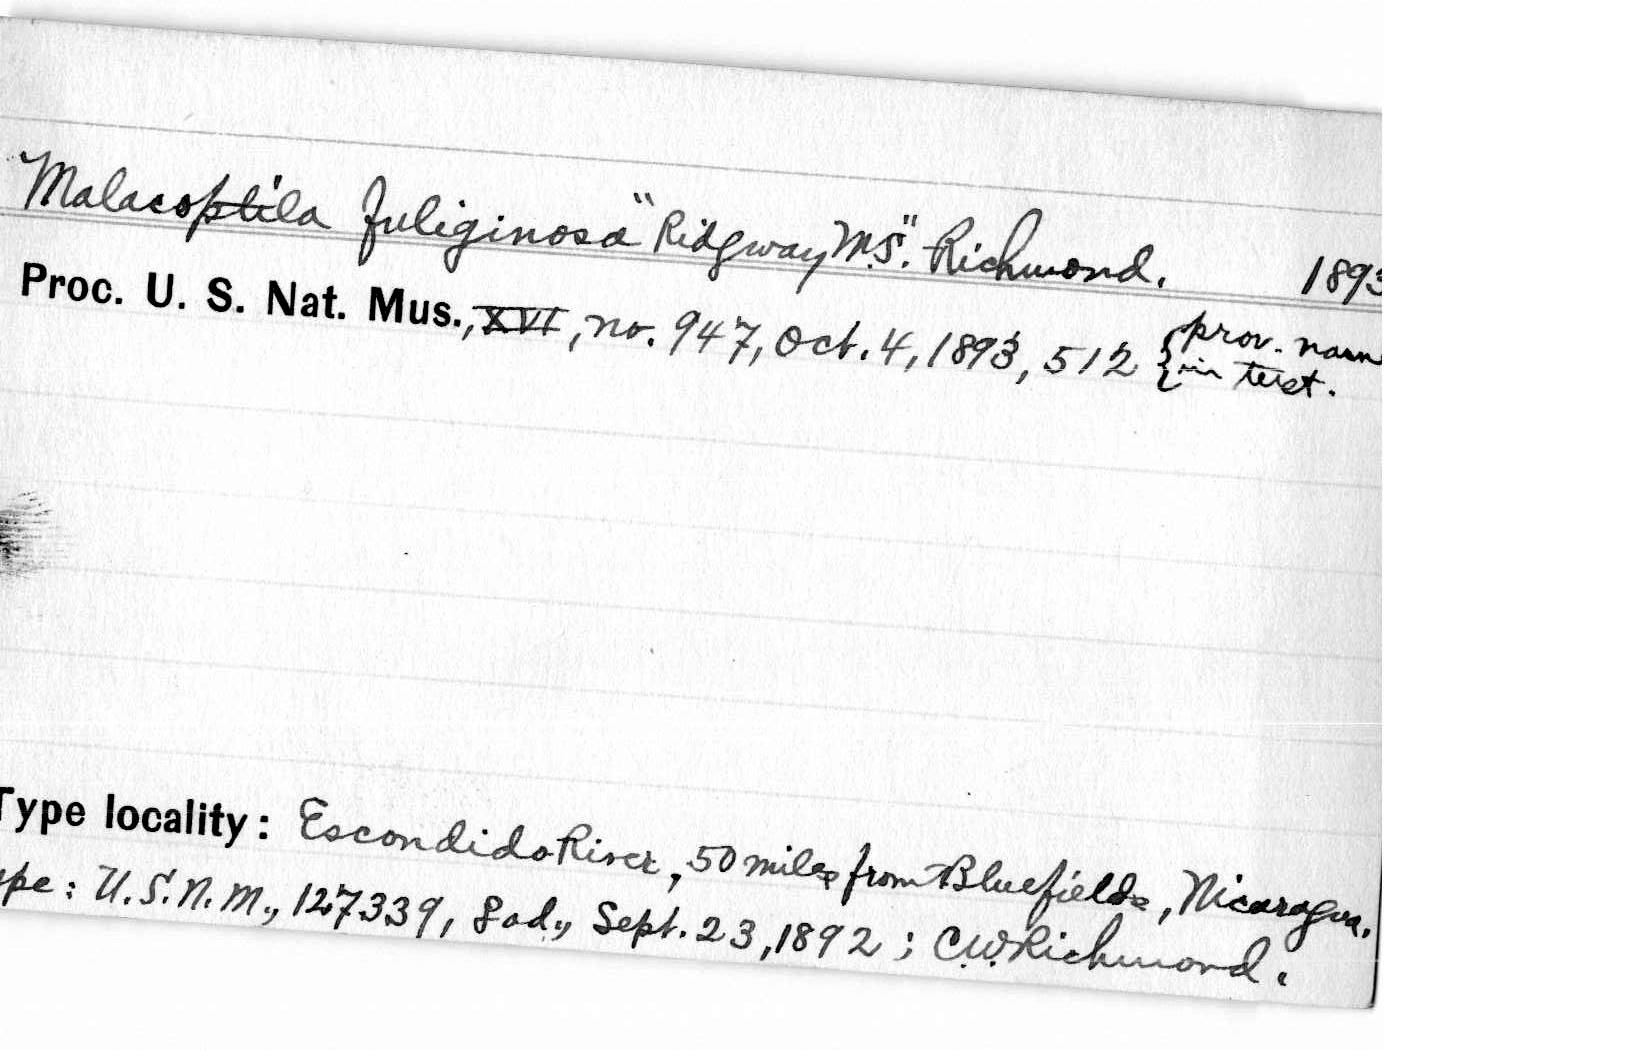 Malacoptila fuliginosa "Ridgway MS". Richmond. 1893
Proc. U. S. Nat. Mus., XVI, no. 947, Oct. 4, 1893, 512 { prov. nam
in text.
Type locality: Escondido River, 50 miles from Bluefields, Nicaragua.
ype: U.S.N.M., 127339, ad., Sept. 23, 1892; C.W. Richmond.